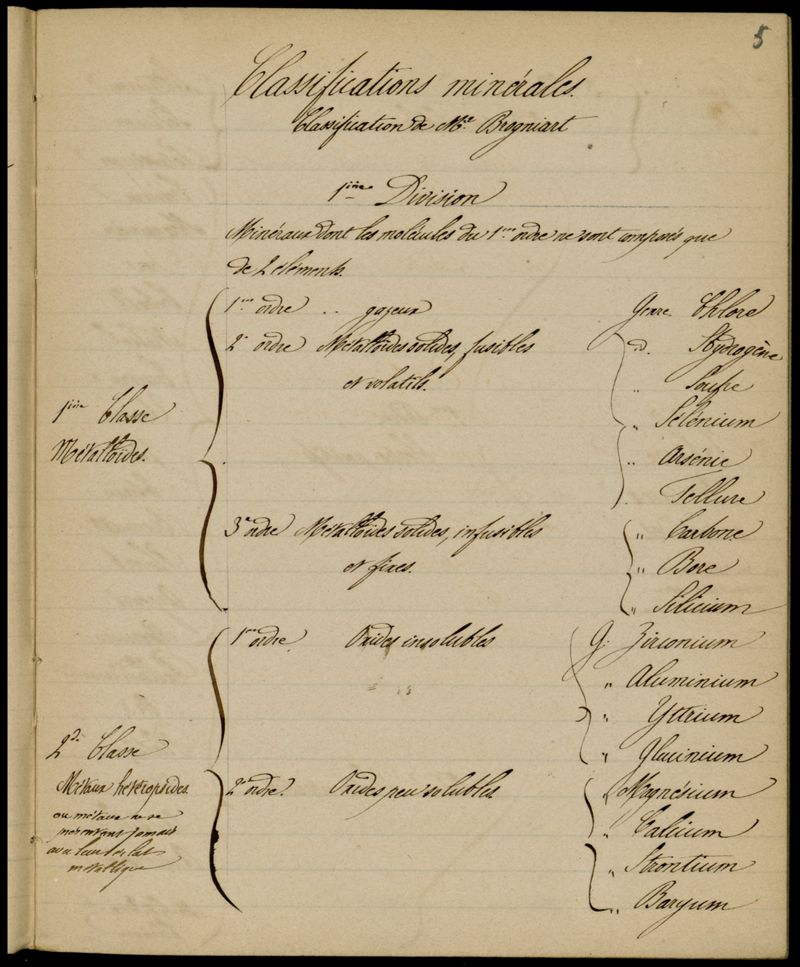 5
Classifications minérales.
Classification de Mr. Brogniart
1ière Division
Minéraux dont les molécules du 1er ordre ne sont composés que
de 2 éléments.
1er ordre .. gazeux Genre. Chlore
2e ordre Métalloïdes solides, fusibles id. Hydrogène
et volatils. " Soufre
1ière Classe " Sélénium
Métalloïdes. " Arsénic
Tellure
3e ordre Métalloïdes solides, infusibles " Carbone
et fixes. " Bore
" Silicium
1er ordre. Oxides insolubles G. Zirconium
" Aluminium
" Yttrium
2de Classe " Glucinium
Métaux hétéropsides. 2e ordre. Oxides peu solubles " Magnésium
ou métaux ne se
présentant jamais " Calcium
avec leur éclat " Strontium
métallique " Baryum